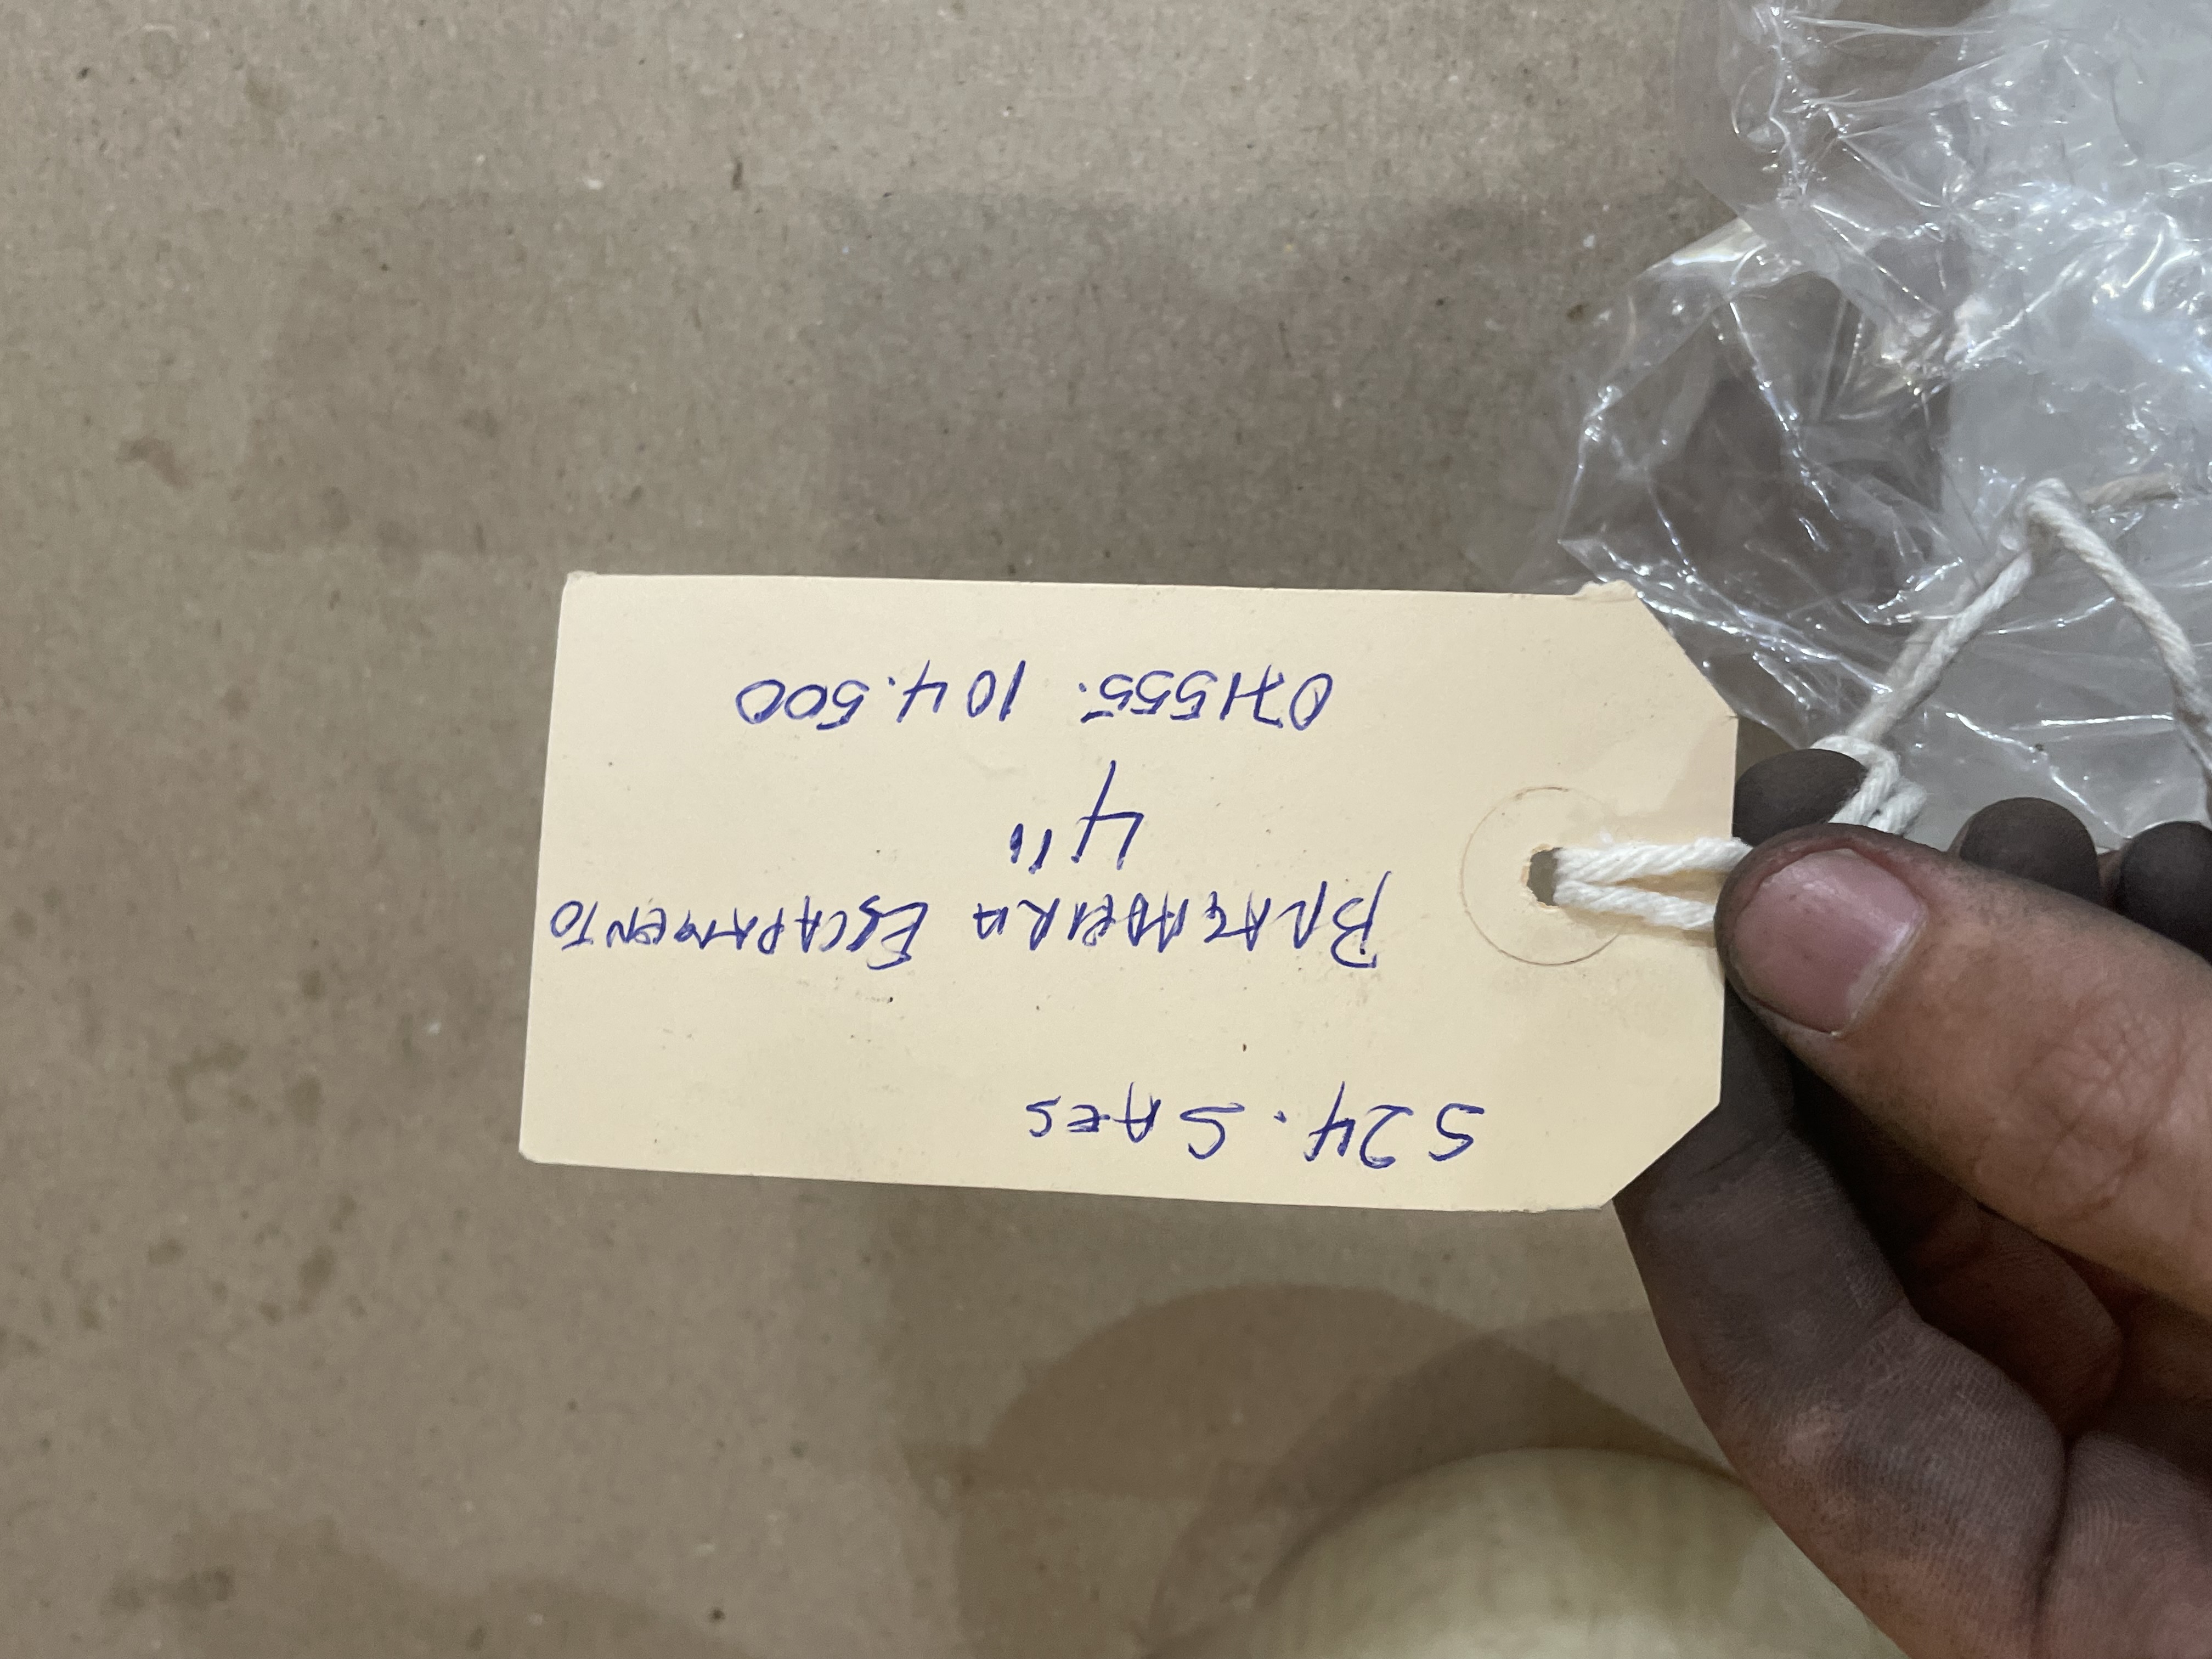 S24. SAES
BRAÇADEIRA ESCAPAMENTO
4"
071555. 104.500